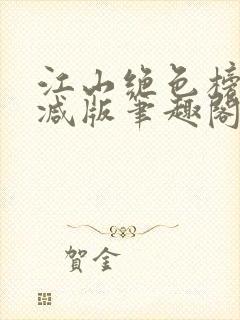 江山绝色榜
减版笔趣阁
贺金